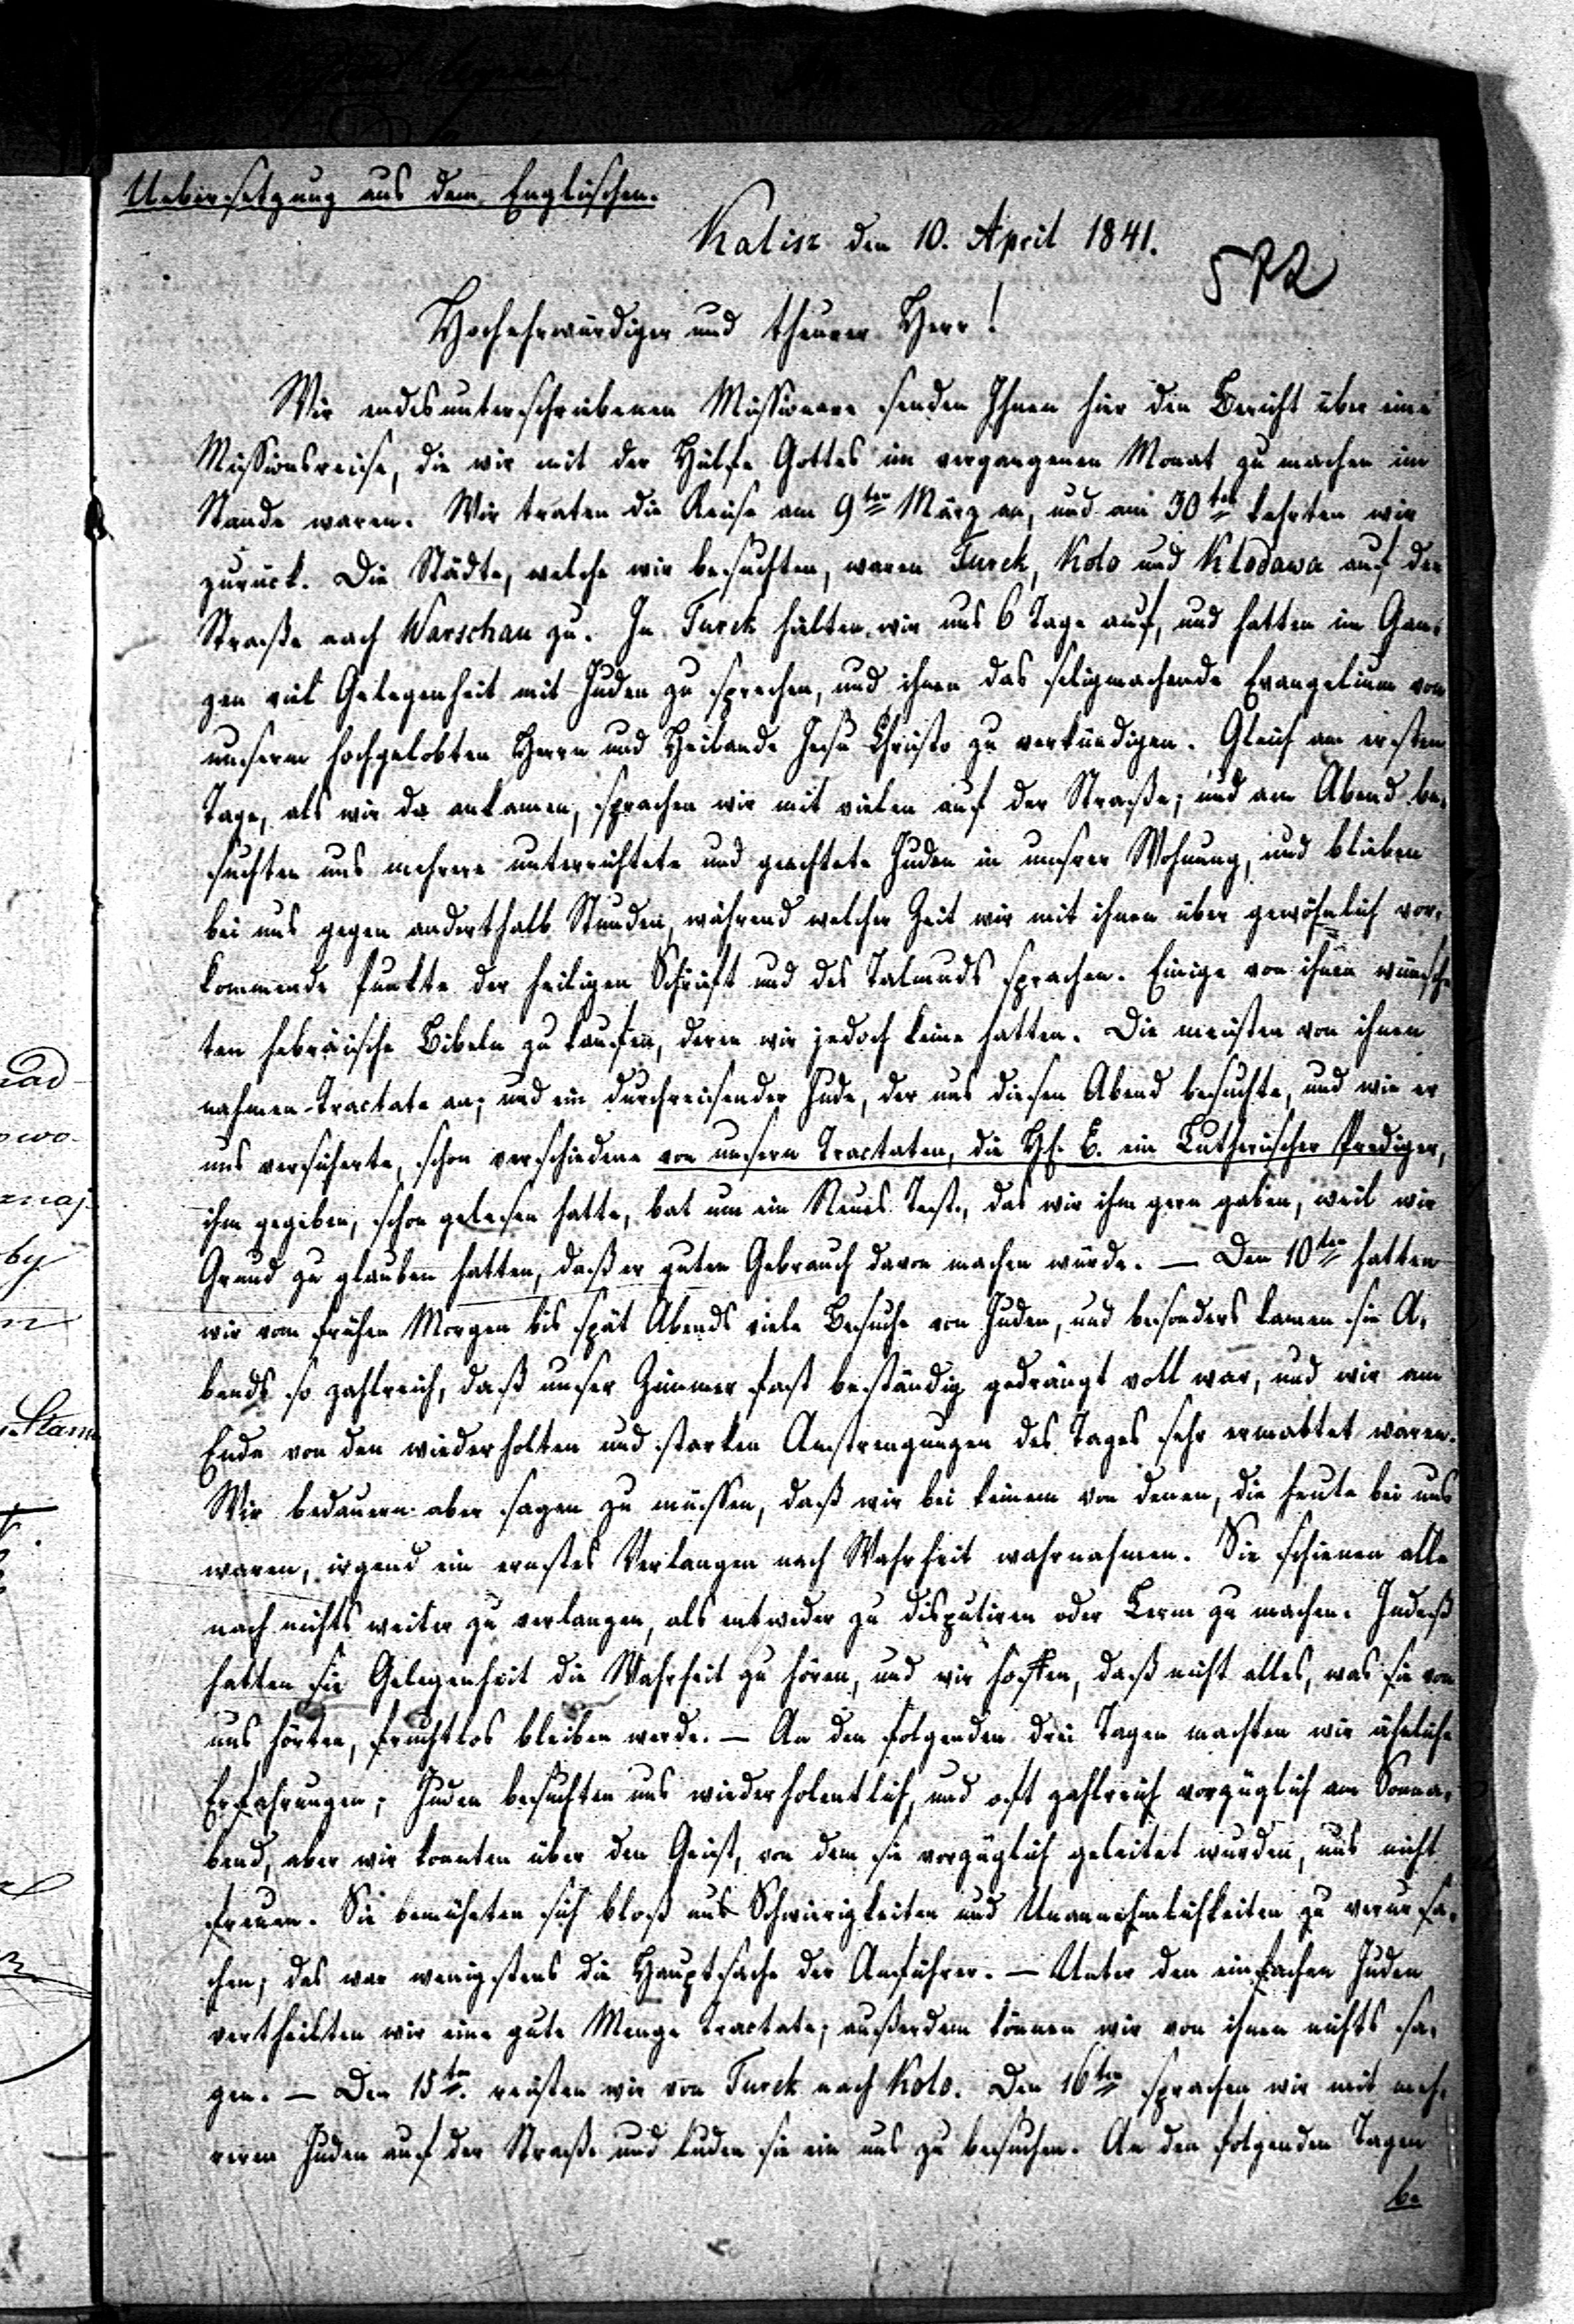 Uebersetzung aus dem Englischen.
Kalisz den 10. April 1841.
572
Hochehrwürdiger und theurer Herr!
Wir endesunterschriebenen Missionare senden Ihnen hier den Bericht über eine
Missionsreise, die wir mit der Hülfe Gottes im vergangenen Monat zu machen im
Stande waren. Wir traten die Reise am 9ten März an, und am 30ten kehrten wir
zurück. Die Städte, welche wir besuchten, waren Turek, Kolo und Klodawa auf der
Straße nach Warschau zu. In Turek hielten wir uns 6 Tage auf, und hatten im Gan-
zen viel Gelegenheit mit Juden zu sprechen, und ihnen das seligmachende Evangelium von
unserm hochgelobten Herrn und Heilande Jesu Christo zu verkündigen. Gleich am ersten
Tage, als wir da ankamen, sprachen wir mit vielen auf der Straße; und am Abend be-
suchten uns mehrere unterrichtete und geachtete Juden in unsrer Wohnung, und blieben
bei uns gegen anderthalb Stunden, während welcher Zeit wir mit ihnen über gewöhnlich vor-
kommende Punkte der heiligen Schrift und des Talmuds sprachen. Einige von ihnen wünsch-
ten hebräische Bibeln zu kaufen, deren wir jedoch keine hatten. Die meisten von ihnen
nahmen Tractate an; und ein durchreisender Jude, der uns diesen Abend besuchte, und wie er
uns versicherte, schon verschiedene von unsern Tractaten, die H. E. ein Lutherischer Prediger,
ihm gegeben, schon gelesen hatte, bat um ein Neues Test., das wir ihm gern gaben, weil wir
Grund zu glauben hatten, daß er guten Gebrauch davon machen würde. — Den 10ten hatten
wir vom frühen Morgen bis spät Abends viele Besuche von Juden, und besonders kamen sie A-
bends so zahlreich, daß unser Zimmer fast beständig gedrängt voll war, und wir am
Ende von den wiederholten und starken Anstrengungen des Tages sehr ermattet waren.
Wir bedauern aber sagen zu müssen, daß wir bei keinem von denen, die heute bei uns
waren, irgend ein ernstes Verlangen nach Wahrheit wahrnahmen. Sie schienen alle
nach nichts weiter zu verlangen, als entweder zu disputiren oder Lerm zu machen. Indeß
hatten sie Gelegenheit die Wahrheit zu hören, und wir hoffen, daß nicht alles, was sie von
uns hörten, fruchtlos bleiben werde. — An den folgenden drei Tagen machten wir ähnliche
Erfahrungen; Juden besuchten uns wiederholentlich, und oft zahlreich vorzüglich am Sonna-
bend, aber wir konnten über den Geist, von dem sie vorzüglich geleitet wurden, uns nicht
freuen. Sie bemühten sich bloß uns Schwierigkeiten und Unannehmlichkeiten zu verursa-
chen; das war wenigstens die Hauptsache der Anführer. — Unter den einfachen Juden
vertheilten wir eine gute Menge Tractate; außerdem können wir von ihnen nichts sa-
gen. — Den 15ten reisten wir von Turek nach Kolo. Den 16ten sprachen wir mit meh-
reren Juden auf der Straße und luden sie ein uns zu besuchen. An den folgenden Tagen
be